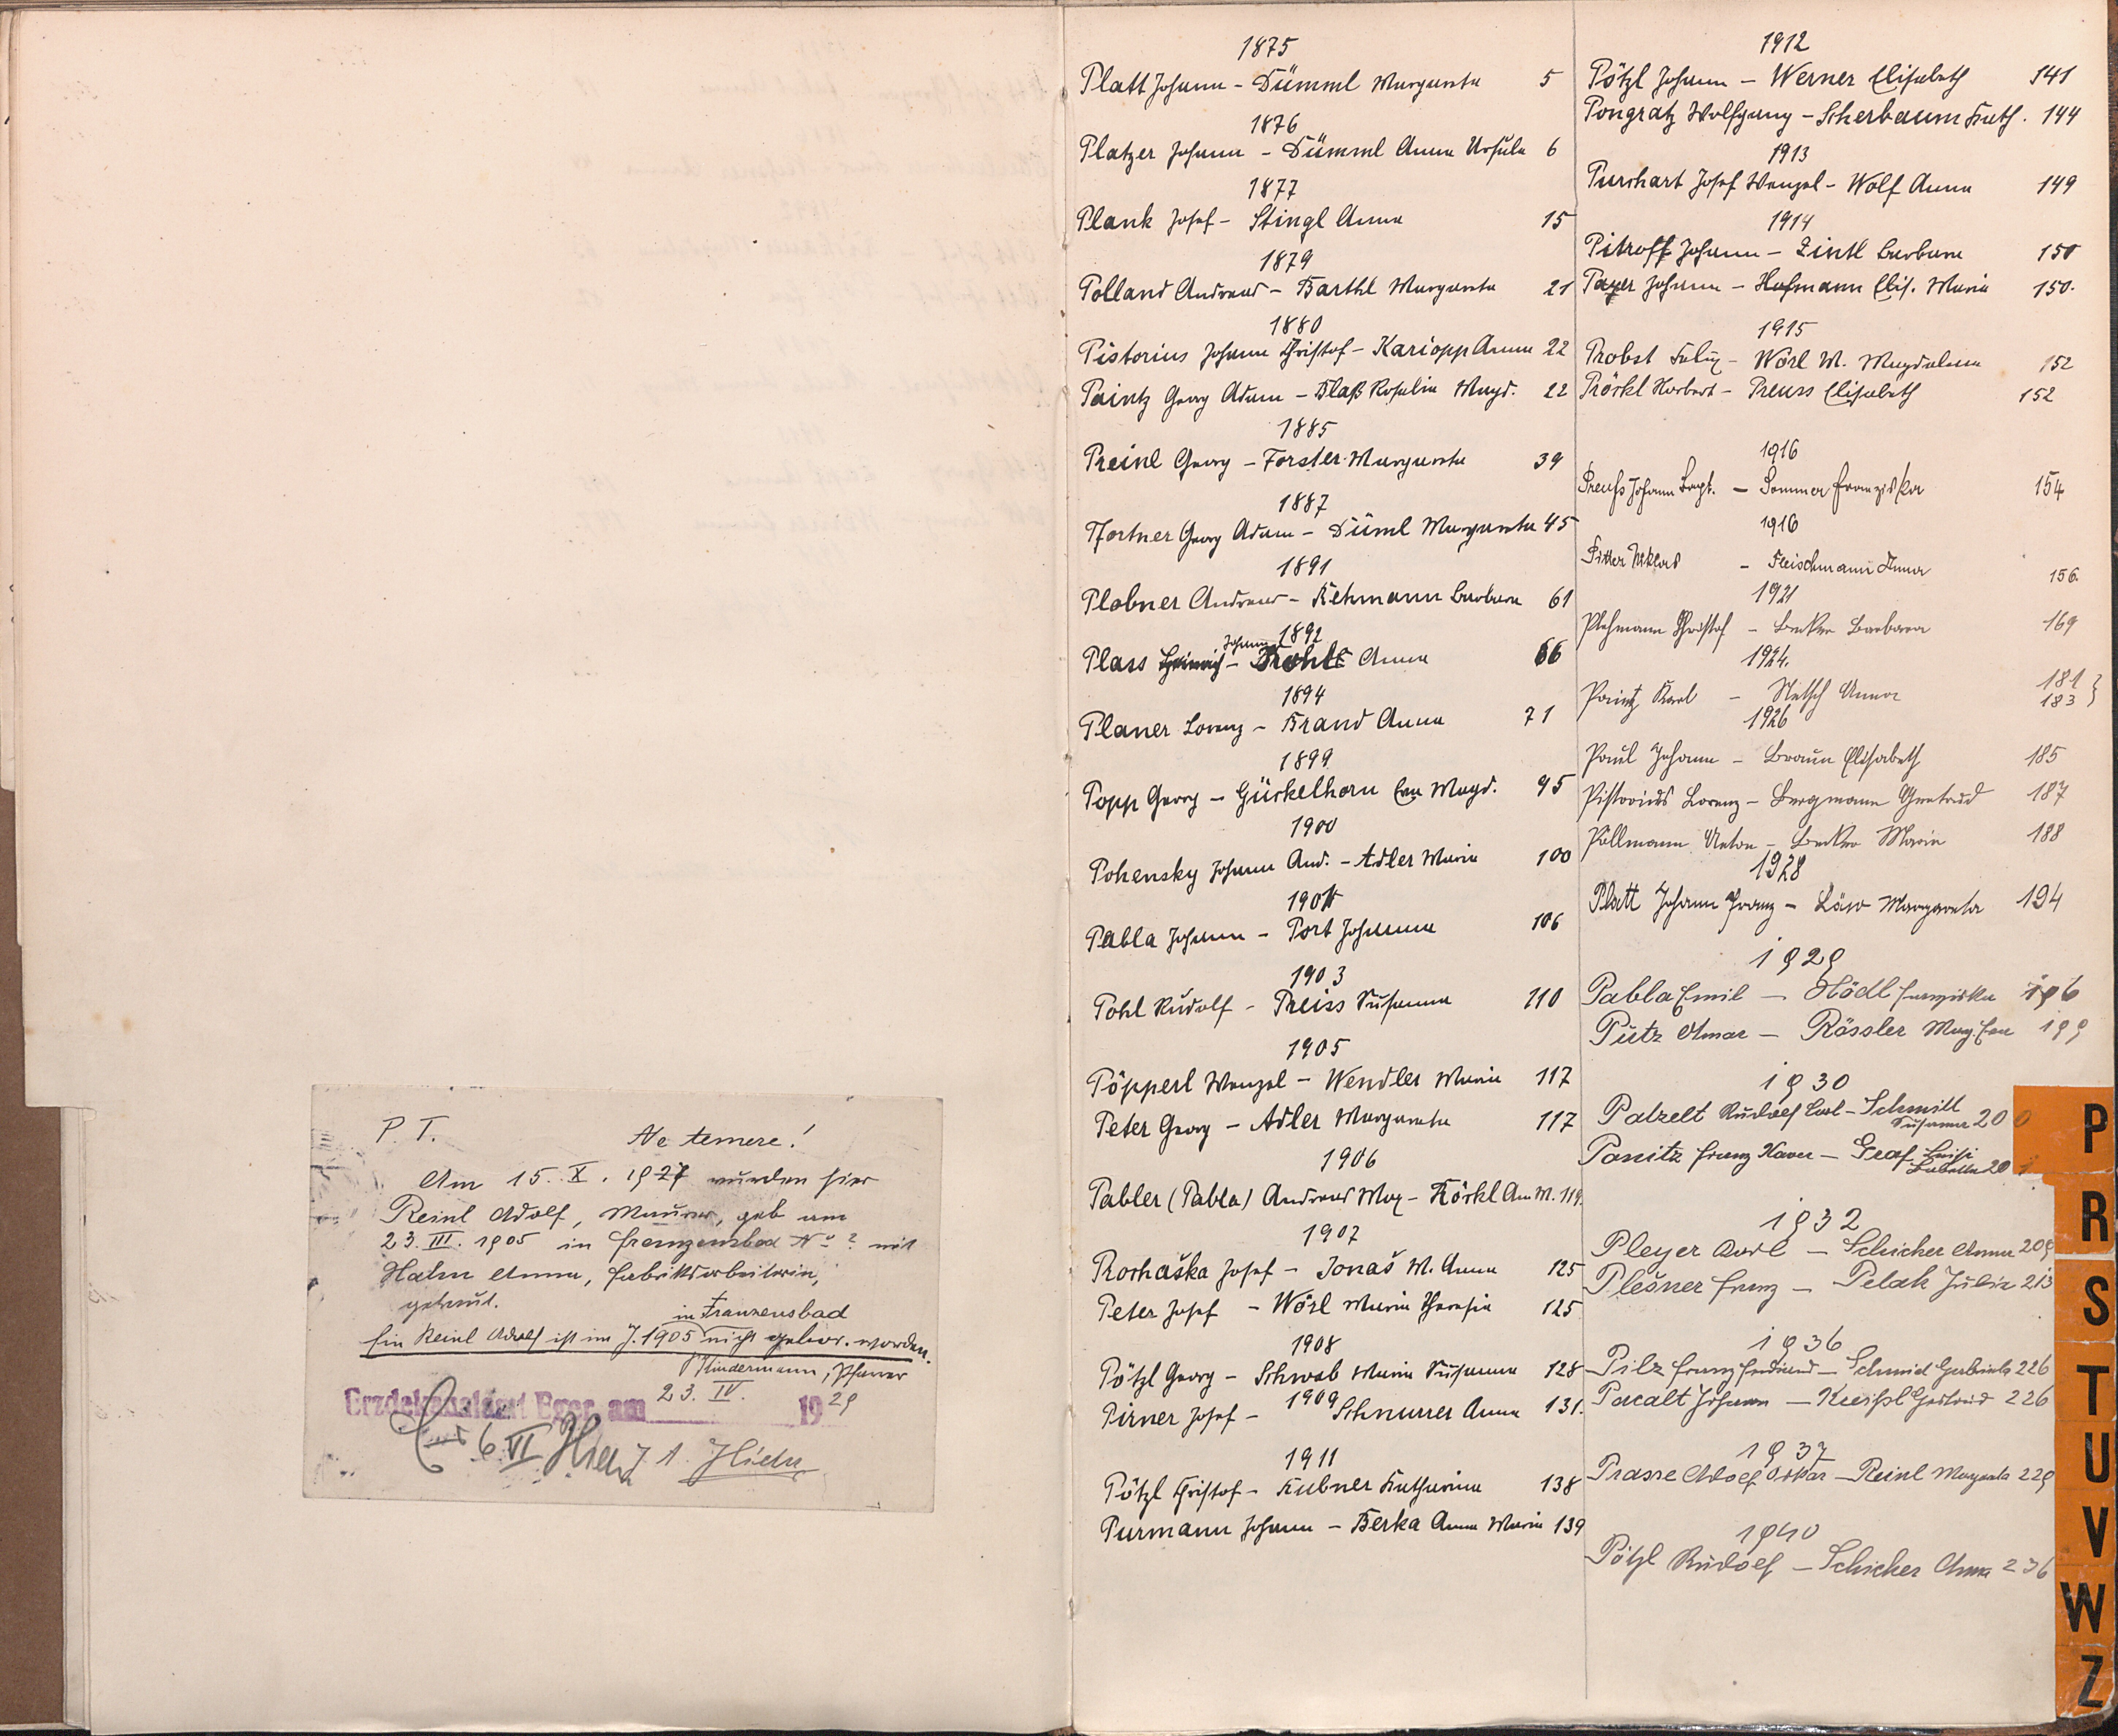 P. T. Ne temere!
Am 15. X. 1927 wurden hier
Reinl Adolf, Maurer, geb am
23. III. 1905 in Franzensbad No ? mit
Hahn Anna, Fabriksarbeiterin,
getraut.
in Franzensbad
Ein Reinl Adolf ist im J. 1905 nicht gebor. worden.
Kindermann, Pfarrer
Erzdekanalamt Eger, am 23. IV. 1929
6. VI
1875
Platt Johann - Dümml Margareta 5
1876
Platzer Johann - Dümml Anna Ursula 6
1877
Plank Josef - Stingl Anna 15
1879
Polland Andreas - Barthl Margareta 21
1880
Pistorius Johann Christof - Kariopp Anna 22
Paintz Georg Adam - Blaß Rosalia Magd. 22
1885
Preinl Georg - Forster Margareta 39
1887
Pfortner Georg Adam - Düml Margareta 45
1891
Plobner Andreas - Rehmann Barbara 61
1892
Johann
Plass Heinrich - Anna 66
1894
Planer Lorenz - Brand Anna 71
1899
Popp Georg - Gückelhorn Eva Magd. 95
1900
Pohensky Johann And. - Adler Maria 100
1901
Pabla Johann - Port Johanna 106
1903
Pohl Rudolf - Preiss Susanna 110
1905
Pöpperl Wenzel - Wendler Maria 117
Peter Georg - Adler Margareta 117
1906
Pabler (Pabla) Andreas Max - Körkl An M. 119.
1907
Prochaška Josef - Jonaš M. Anna 125
Peter Josef - Wörl Maria Theresia 125
1908
Pötzl Georg - Schwab Maria Susanna 128
1909
Pirner Josef - Schnurrer Anna 131.
1911
Pötzl Christof - Kubner Katharina 138
Purmann Johann - Berka Anna Maria 139
1912
Pötzl Johann - Werner Elisabeth 141
Pongratz Wolfgang - Scherbaum Kath. 144
1913
Purchart Josef Wenzel - Wolf Anna 149
1914
Pitroff Johann - Zintl Barbara 150
Payer Johann - Hofmann Elis. Maria 150.
1915
Probst Felix - Wörl M. Magdalena 152
Pröckl Norbert - Preuss Elisabeth 152
1916
Preuß Johann Bapt. - Sommer Franziska 154
1916
Pitter Niklas - Fleischmann Anna 156.
1921
Plehmann Christof - Becker Barbara 169
1924.
Paintz Karl - Netsch Anna 181
183 }
1926
Paul Johann - Braun Elisabeth 185
Pistorius Lorenz - Bergmann Gertrud 187
Pöllmann Anton - Becker Maria 188
1928
Platt Johann Franz - Löw Margareta 194
1929
Pabla Emil - Hödl Franziska 196
Putz Otmar - Rössler Mag. Eva 199
1930
Patzelt Rudolf Karl - Schmitt
Susanna 200
Panitz Franz Xaver - Graf Luise
Babette 201
1932
Pleyer Karl - Schicker Anna 209
Plešner Franz - Pelak Julie 213
1936
Pilz Franz Ferdinand - Schmid Gabriela 226
Pacalt Johann - Kneißl Gertrud 226
1937
Prasse Adolf Oskar - Reinl Margareta 229
1940
Pötzl Rudolf - Schicker Anna 236
P
R
S
T
U
V
W
Z